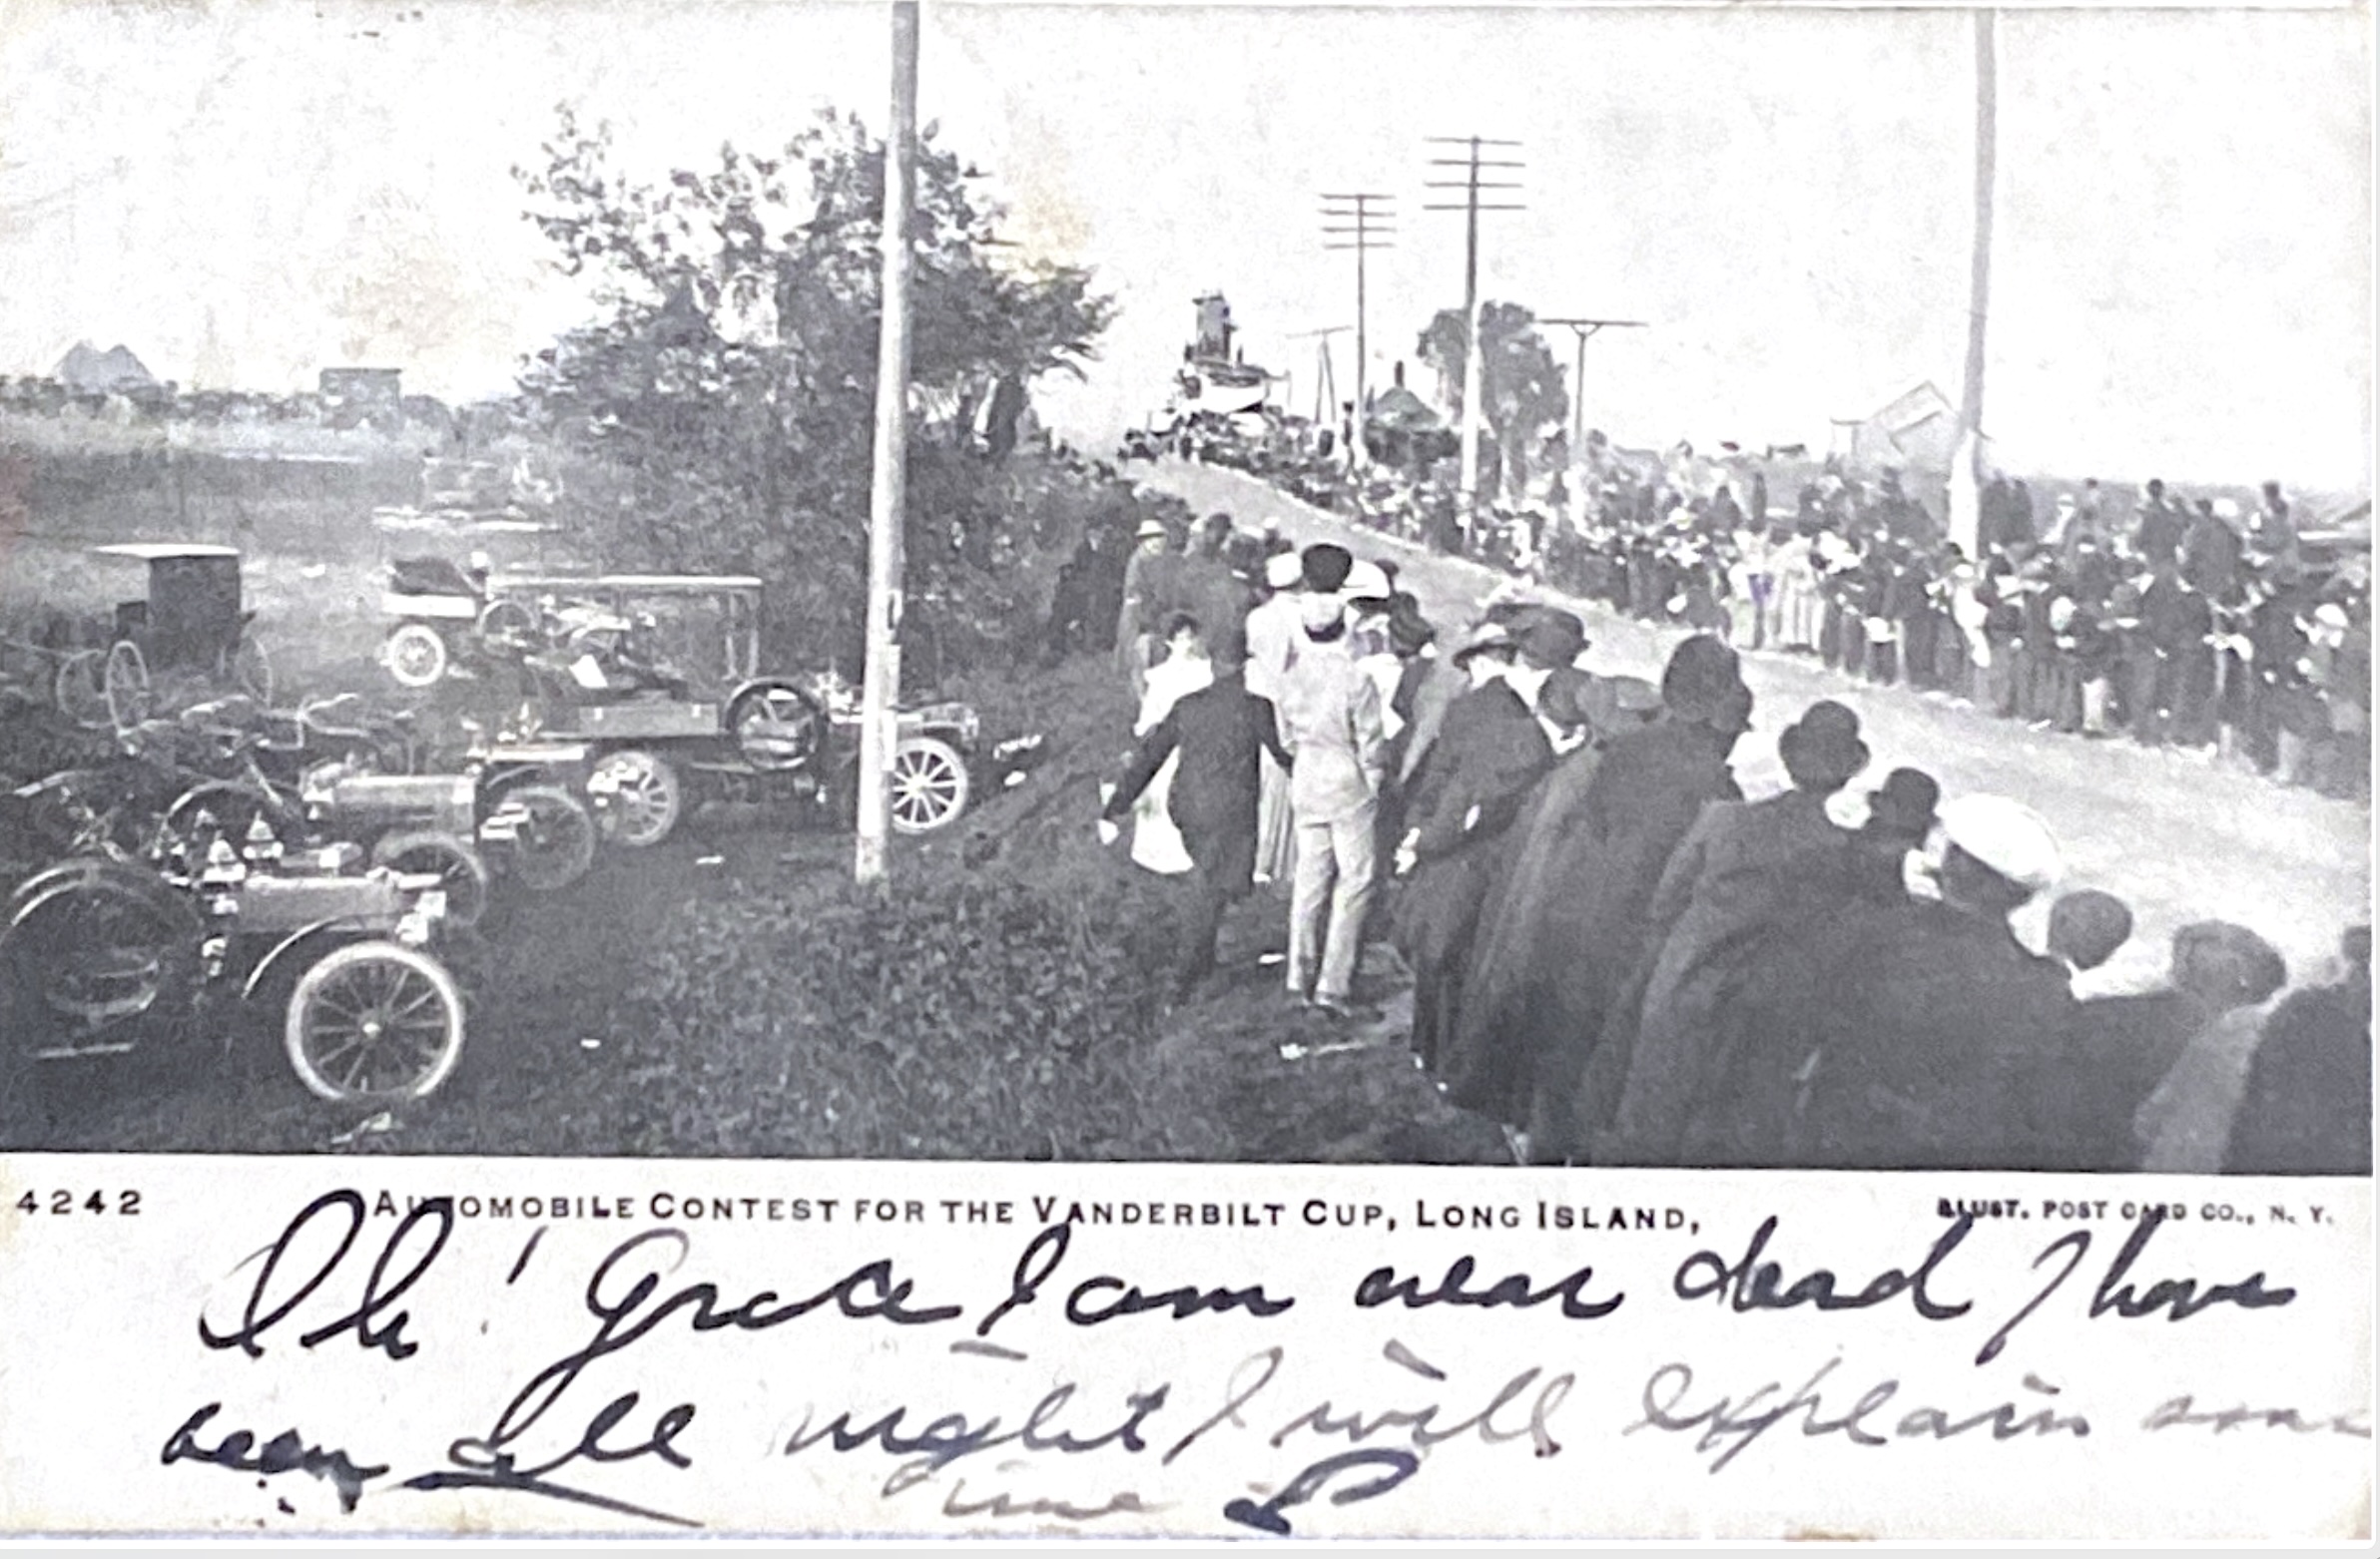 4242 AUTOMOBILE CONTEST FOR THE VANDERBILT CUP, LONG ISLAND, ILLUST. POST CARD CO., N. Y.
Oh! Grace I am near dead I have
been Ill night I will explain some
time